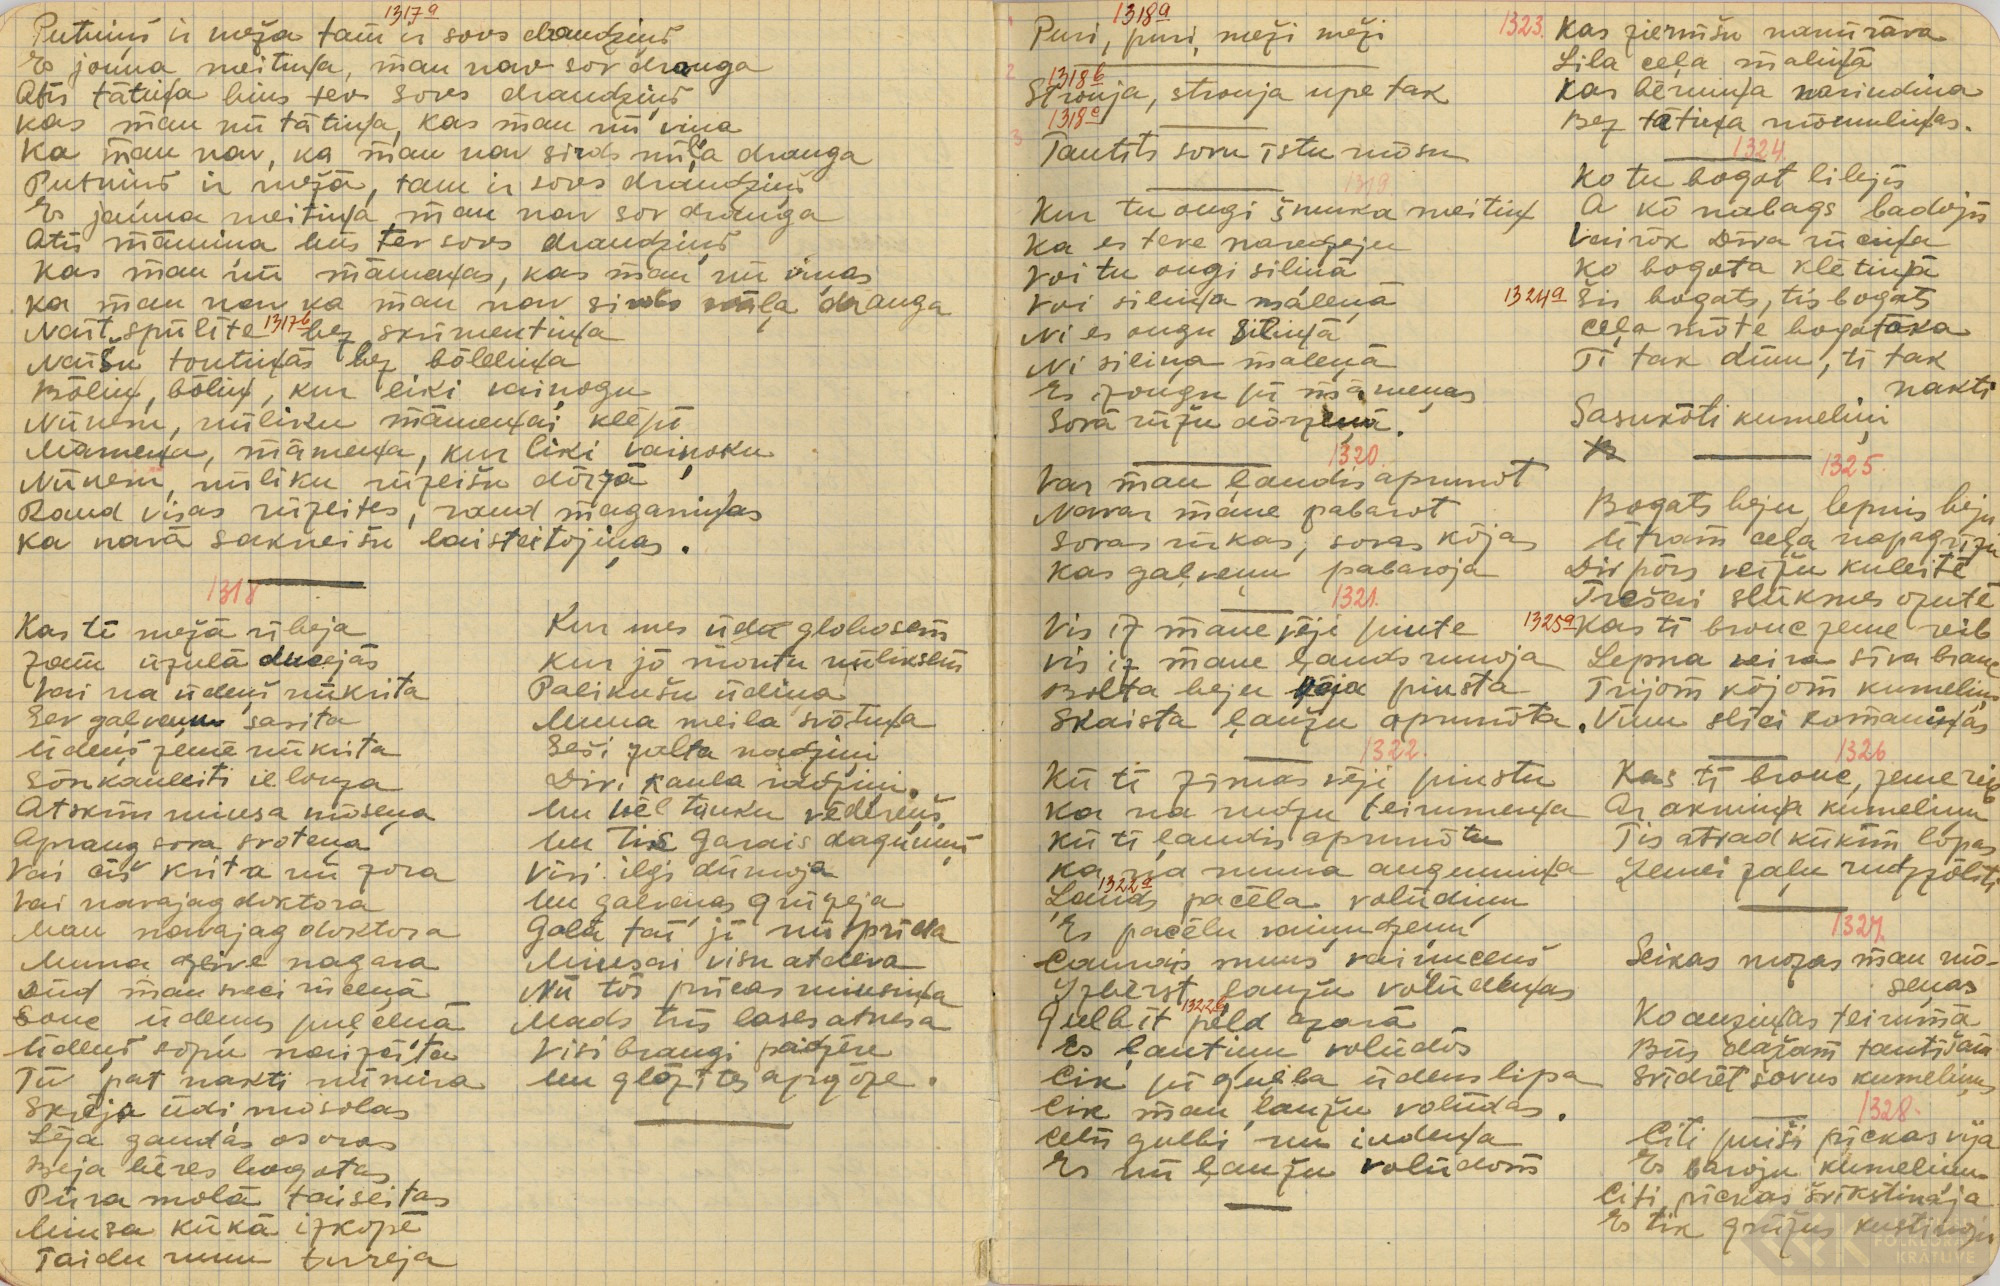 1317a
Putniņš ir mežā tam ir sovs draudziņš
Es jauna meitiņa, man nav sov drauga
Atīs tātiņa būs tev sovs draudziņš
Kas man nū tātiņa, kas man nū viņa
Ka man nav, ka man nav sirds mīļa drauga
Putniņš ir mežā, tam ir sovs draudziņš
Es jauna meitiņa man nav sov drauga
Atīs māmiņa būs tev sovs draudziņš
Kas man nū māmeņas, kas man nū viņas
ka man nav ka man nav sirds mīļa drauga
1317b
Naīt spūlīte bez skrimentiņa
Naīšu toutiņās bez bōleliņa
Bōliņ, bōliņ, kur liki vaiņogu
Nūnem, nūliku māmeņai klēpī
Māmeņa, māmeņa, kur liki vaiņoku
Nūnem, nūliku rūzeišu dōrzā
Raud visas rūzeites, raud maganiņas
Ka navā sakneišu laisteitōjiņas.
1318
Kas tī mežā rībeja
Zam ūzula ducejās
Vai na ūdeņš nūkrita
Sev galveņu sasita
Ūdeņš zemē nūkrita
Sōnkauleiti īlouza
Atskrīn miusa mōseņa
Apraug sova svoteņa
Vai cīš krita nū zora
Vai navajag doktora
Man navajag doktora
Muna dzeive nagara
Dūd man sveci rūceņā
Souc ūdeņus pulceņā
Ūdeņš sōpu naizcīta
Tū pat nakti nūmira
Skrēja ūdi, mosolas
Lēja gaudās osoras
Beja bēres bogotas
Pūra molā taiseitas
Miusa kūkā izkopē
Taidu runu tureja
Kur mes ūdu globosem
Kur jō montu nūliksem
Palikušu ūdiņa
Muna meila svōtiņa
Seši zalta nadziņi
Divi kaula rodziņi
Un vēl tauku vēdereņš
Un tīs garais daguneņš
Visi ilgi dūmoja
Un galveņas grūzeja
Golā taī jī nūsprīda
Miusai visu atdeva
Nū tōs prīcas miusiņa
Mads trīs lases atnesa
Visi braugi padzēre
Un glōzītes apgōze.
1318a
Puri, puri, meži meži
1318b
Strouja, strouja upe tak
1318c
Tautīts sovu īstu mōsu
1319
Kur tu ougi šmuka meitiņ
Ka es teve naredzeju
Voi tu ougi siliņā
Voi siliņa maleņā
Ni es ougu siliņā
Ni siliņa maleņā
Es izougu pi māmeņas
Sovā rūžu dōrzeņā.
1320.
Var man ļaudis aprunōt
Navar mane pabarot
Sovas rūkas, sovas kōjas
Kas galveņu pabaroja
1321.
Vis iz mane vēji piute
Vis iz mane ļauds runoja
Bolta beju vēja piusta
Skaista ļaužu aprunōta.
1322.
Kū tī zīmas vēji piustu
Ka na rudzu teirumeņa
Kū tī ļaudis aprunōtu
Ka na muna augumiņa
1322a
Ļauds pacēla volūdiņu
Es pacēlu vaiņudzeņu
Caurais muns vaiņuceņš
Izberst ļaužu volūdeņas
1322b
Gulbīt peld azarā
Es ļautiņu volūdōs
Cik pi gulba ūdens lipa
Cik man ļaužu volūdas.
Celīs gulbi nu iudeņa
Es nū ļaužu volūdom
1323.
Kas ziernīšu namirāva
Lila ceļa maliņā
Kas bērniņa narindina
Bez tātiņa mōmuliņas.
1324.
Ko tu bogot lilejīs
A kō nabags badojīs
Vairōk Dīva rūceņa
Ko bogota klētiņā
1324a
Šis bogats, tis bogats
Ceļa mōte bogatōka
Tī tak dīnu, tī tak
nakti
Sasukōti kumeliņi
1325.
Bogats beju, lepnis beju
Ūtram ceļa napagrīzu
Div pōrs veižu kuleitē
Trešai slūksnes ozutē
1325a
Kas tī brouc zeme reib
Lepna veira sīva brauc
Trijom kōjom kumeliņš
Vīnu slīci komaniņas
1326
Kas tī brouc, zeme reib
Ar akmiņa kumeliņu
Tis atrad kūkim lopas
Zemei zaļu rudzzōlīti
1327.
Seikas mozas man mō-
seņas
Ko auziņas teirumā
Būs dažam tautīšam
Svīdrēt sovus kumeliņus
1328.
Citi puiši pūckas vija
Es baroju kumeliņu
Citi pūckas švīkstinaja
Es tik grūžus kustinoju
FOLKLORAS
KRĀTUVE